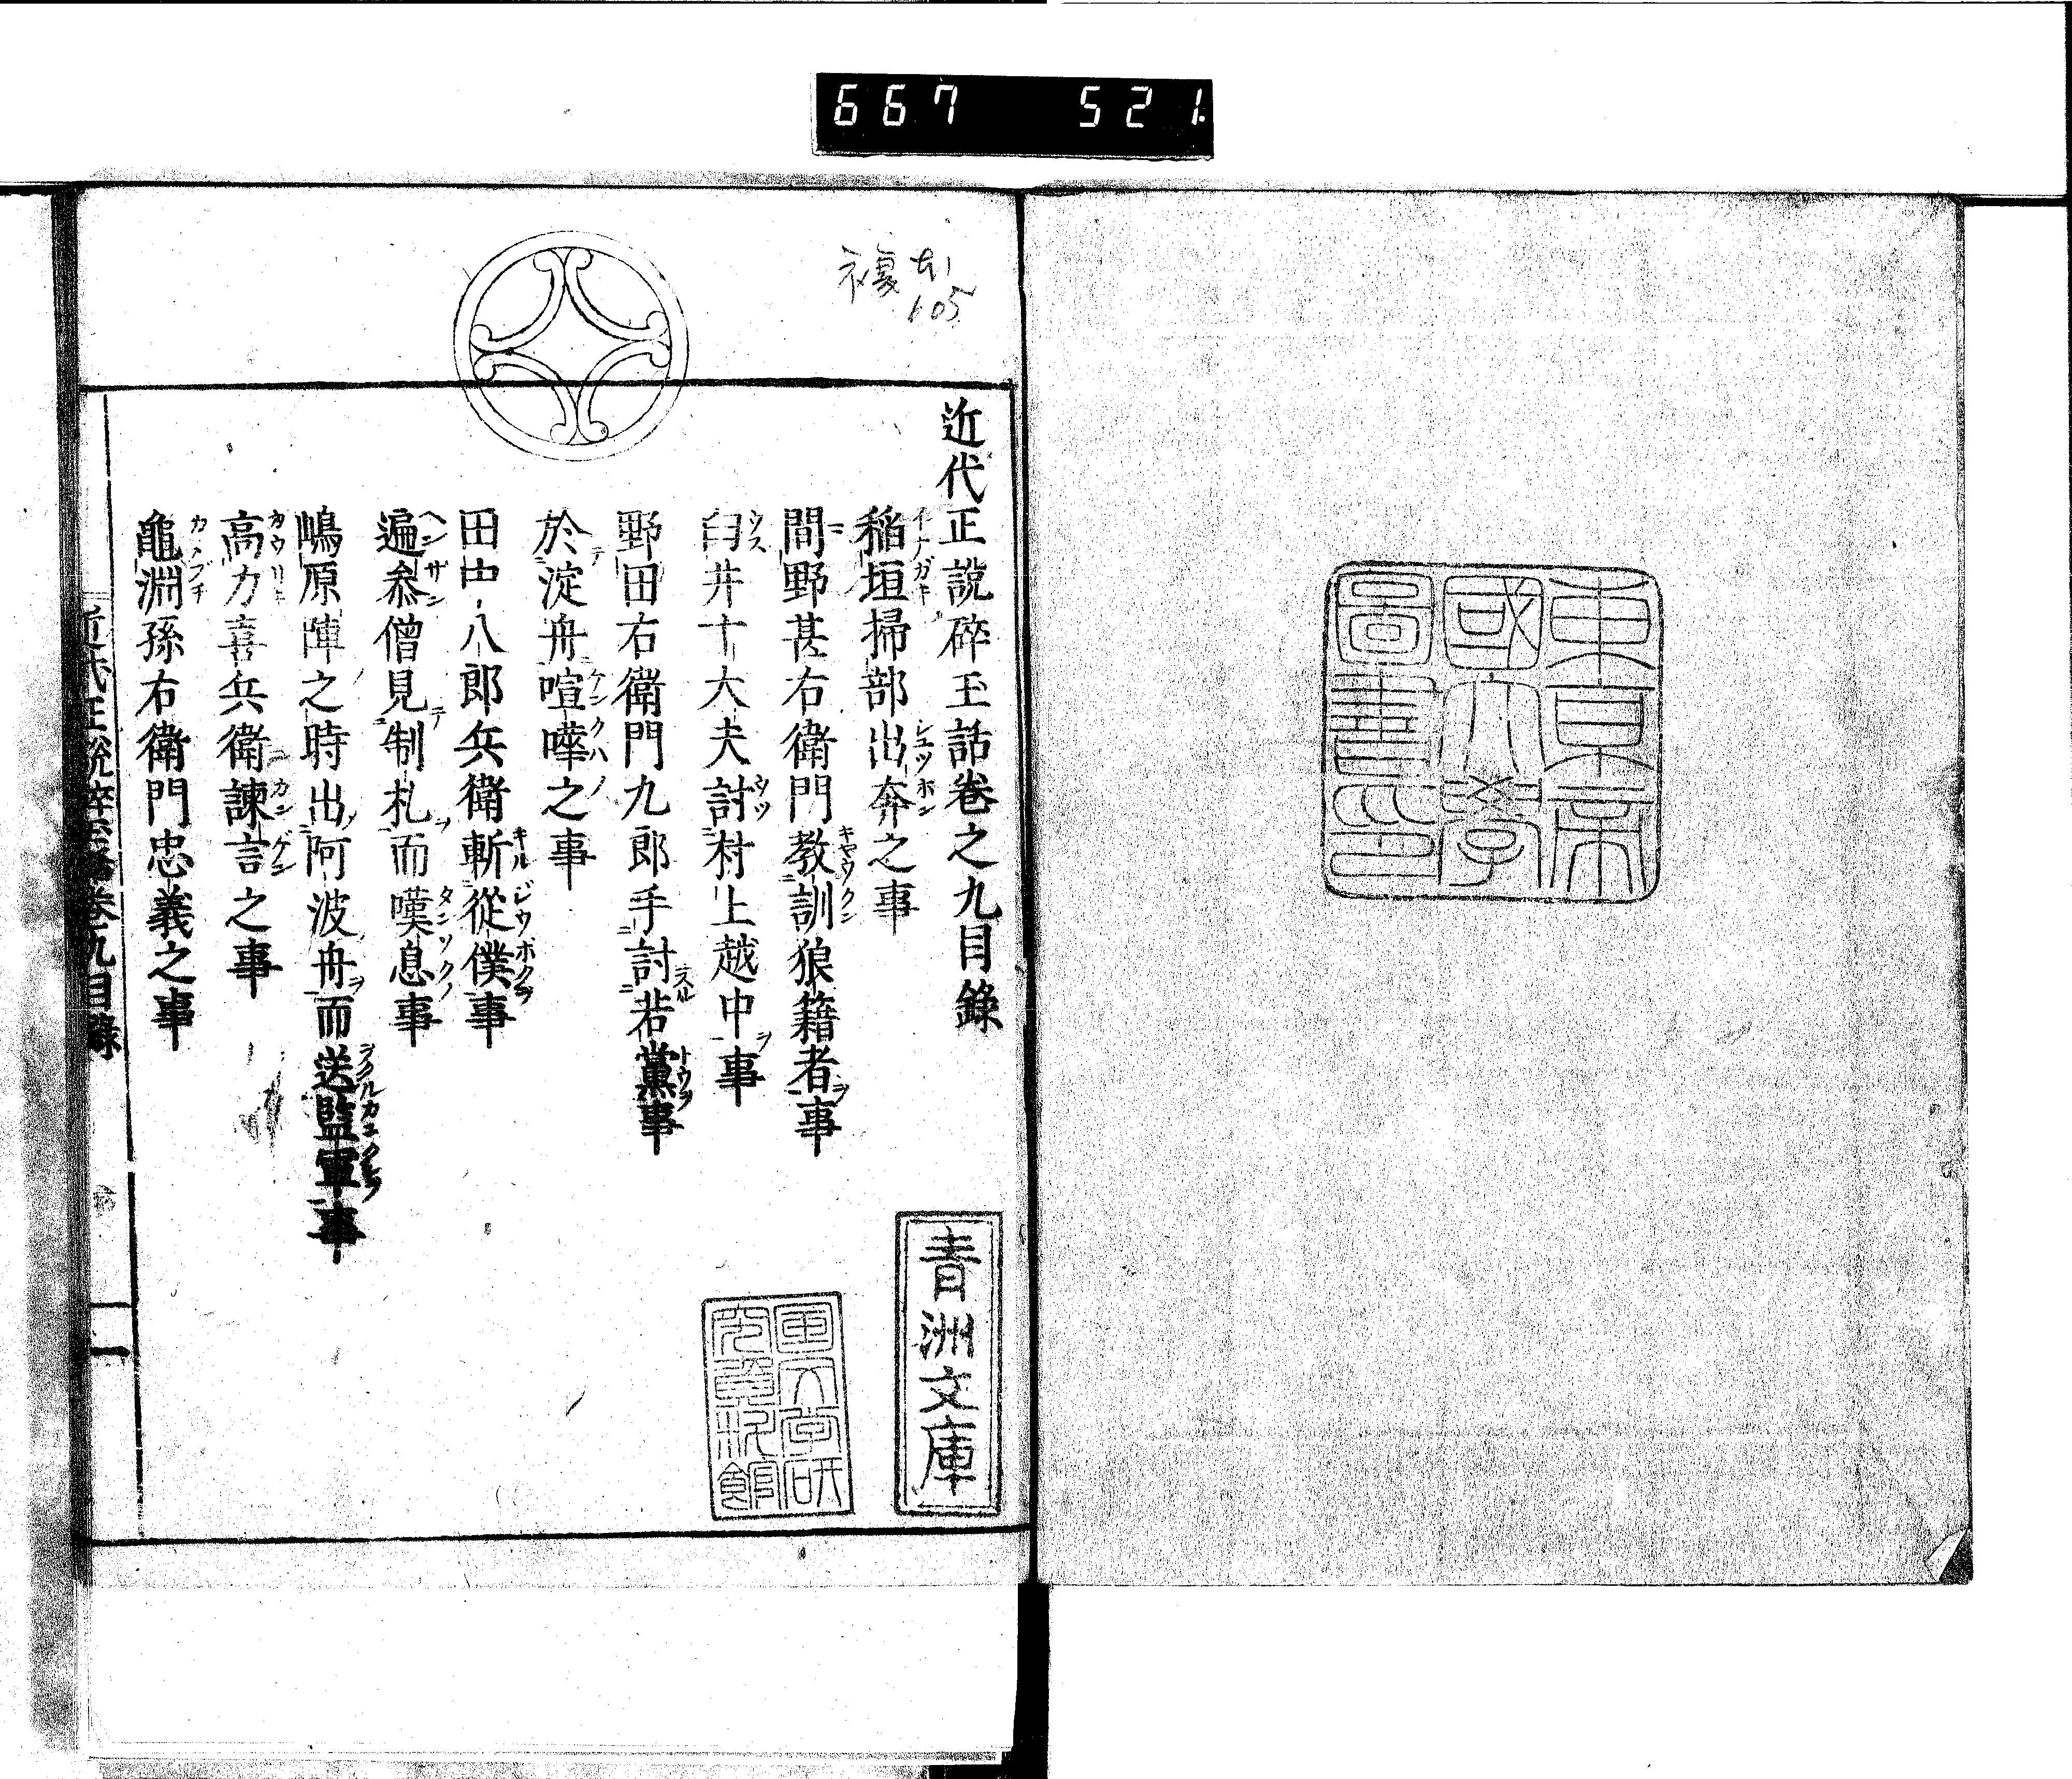 667 521
東京帝
國大學
圖書印
複本
605
近代正說碎玉話卷之九目錄
稲垣掃部出奔之事
間野甚右衛門教訓狼籍者事
臼井十大夫討村上越中事
野田右衛門九郎手討若黨事
於淀舟喧嘩之事
田中八郎兵衛斬從僕事
遍叅僧見制札而嘆息事
嶋原陣之時出阿波舟而送監軍事
高力喜兵衛諫言之事
龜淵孫右衛門忠義之事
近代正說碎玉話卷九目錄 一
青洲文庫